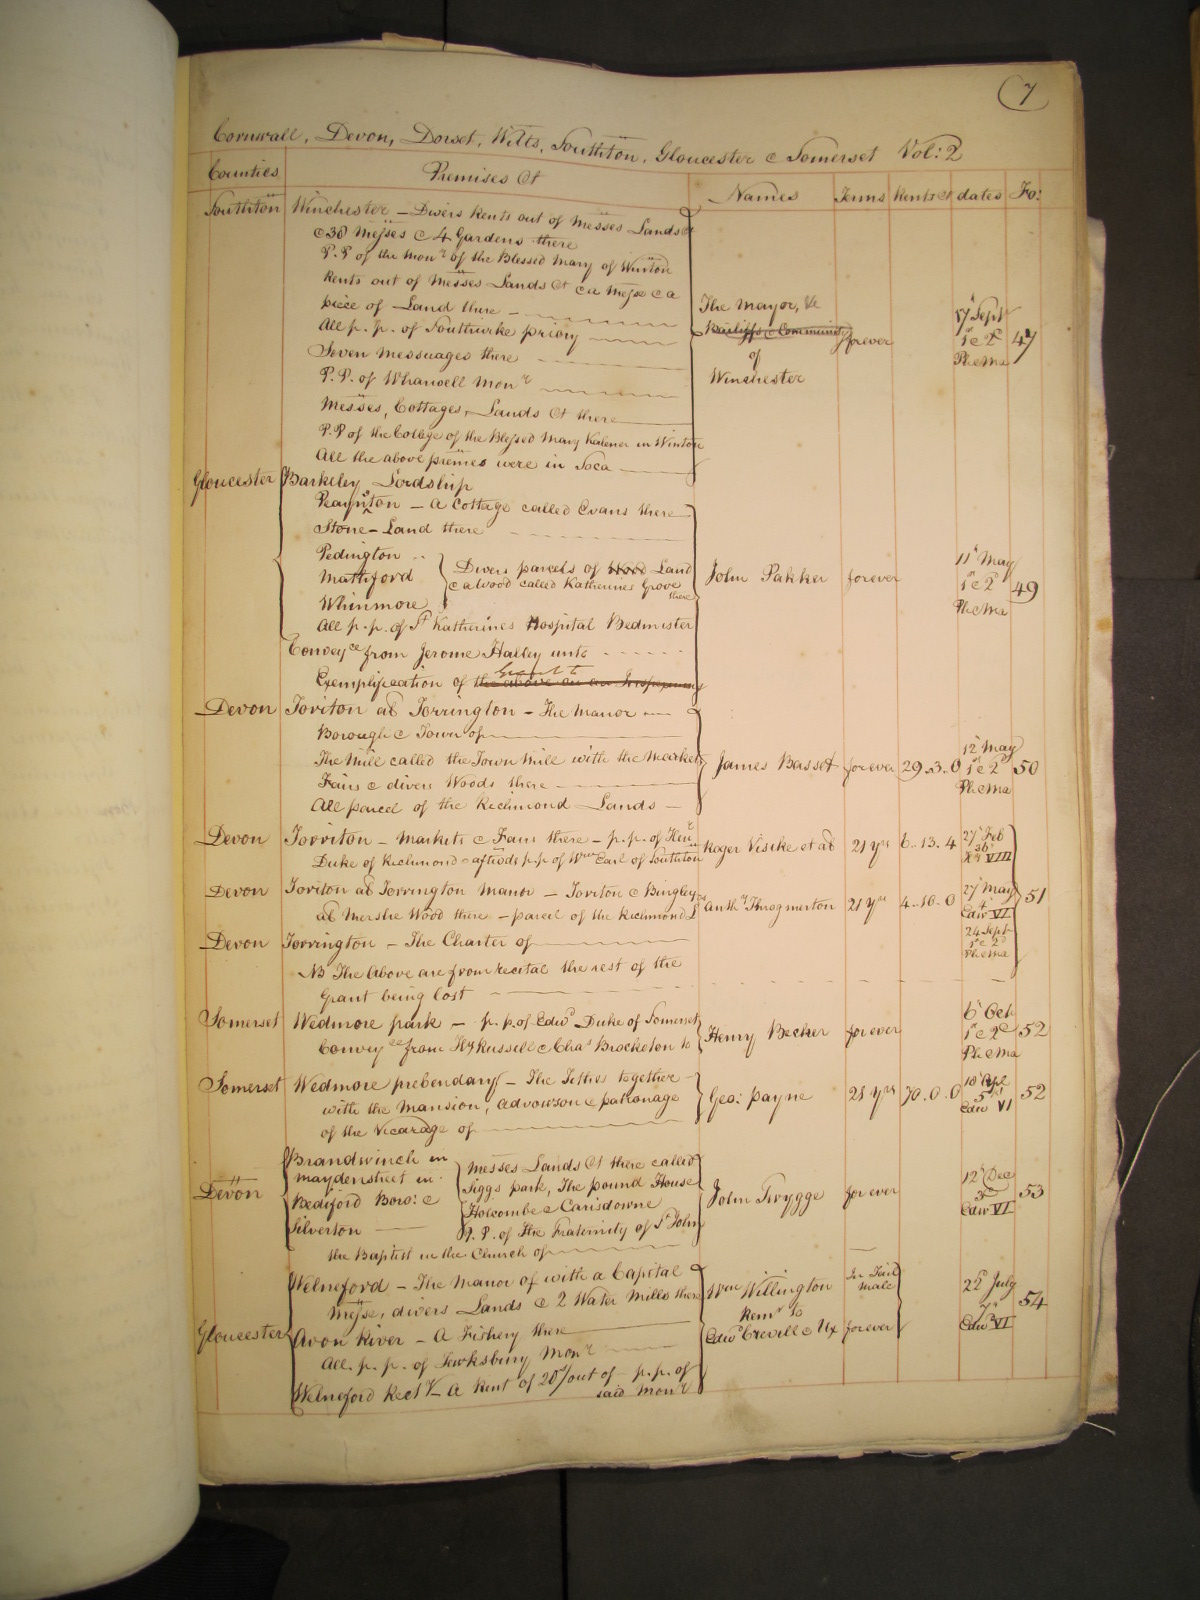 7
Cornwall, Devon, Dorset, Wilts, Southton, Gloucester & Somerset Vol: 2
Counties Premises &c Names Terms Rents &c dates Fo:
Southton Winchester - Divers Rents out of Messes Lands &c
& 38 Messes & 4 Gardens there
P. P of the Monr of the Blessed Mary of Winton
Rents out of Messes Lands &c & a Messe & a
piece of Land there
All p. p. of Southwrke priory
Seven Messuages there
P. P. of Wharwell Monr
Messes, Cottages, Lands &c there
P. P of the College of the Blessed Mary Kalener in Winton
All the above premes were in Soca
The Mayor, &c
Bailiffs & Community
of
Winchester
forever
17 Sept
1st & 2d
Ph & Ma
47
Gloucester Barkeley Lordship
Peaynton - A Cottage called Evans there
Stone - Land there
Pedington
Mathford
Whinmore
Divers parcels of Wood Land
& a wood called Katherines Grove
there
All p. p. of St Katherines Hospital Bedmister
Conveyce from Jerome Halley unto
Grant to
Exemplification of the above on an
John Pakker forever
11 May
1st & 2d
Ph & Ma
49
Devon Toriton als Torrington - The Manor
Borough & Town of
The Mill called the Town Mill with the Markets
Fairs & divers Woods there
All parcel of the Richmond Lands
James Basset forever 29..3..0
12 May
1st & 2d
Ph & Ma
50
Devon Torriton - Markets & Fairs there - p. p. of Henr
Duke of Richmond & aftwds p. p. of Wm Earl of Southton
Roger Visike et als 21 yrs 6..13..4
27 Feb
36
Hy VIII
Devon Toriton als Torrington Manor - Toriton & Bingley
als Mershe Wood there - parcel of the Richmond Lds
Anthy Throgmerton 21 yrs 4..16..0
27 May
4
Edw VI
51
Devon Torrington - The Charter of
24 Sept
1st & 2d
Ph & Ma
NB The Above are from recital the rest of the
Grant being lost
Somerset Wedmore park - p. p. of Edwd Duke of Somerset
Conveyce from Hy Russell & Chas Brocketon to
Henry Becker forever
6 Oct
1st & 2d
Ph & Ma
52
Somerset Wedmore prebendary - The Tithes together
with the Mansion, advowson & patronage
of the Vicarage of
Geo: Payne 21 yrs 70.0.0
10 Apl
5
Edw VI
52
Devon
Brandwinch in
Maydenstreet in
Bediford Boro: &
Silverton
Messes Lands &c there called
Siggs park, The pound House
Holcombe & Carisdowne
P. P. of the Fraternity of St John
the Baptist in the Church of
John Twygge forever
12 Dec
3d
Edw VI
53
Gloucester
Welneford - The Manor of with a Capital
Messe, divers Lands & 2 Water Mills there
Avon River - A Fishery there
All. p. p. of Tewksbury Monr
Welneford Recty - A Rent of 20s/ out of - p. p. of
said Monr
Wm Willington
Remr to
Edwd Grevill & Ux
In Tail
male
forever
22d July
7
Edw VI
54